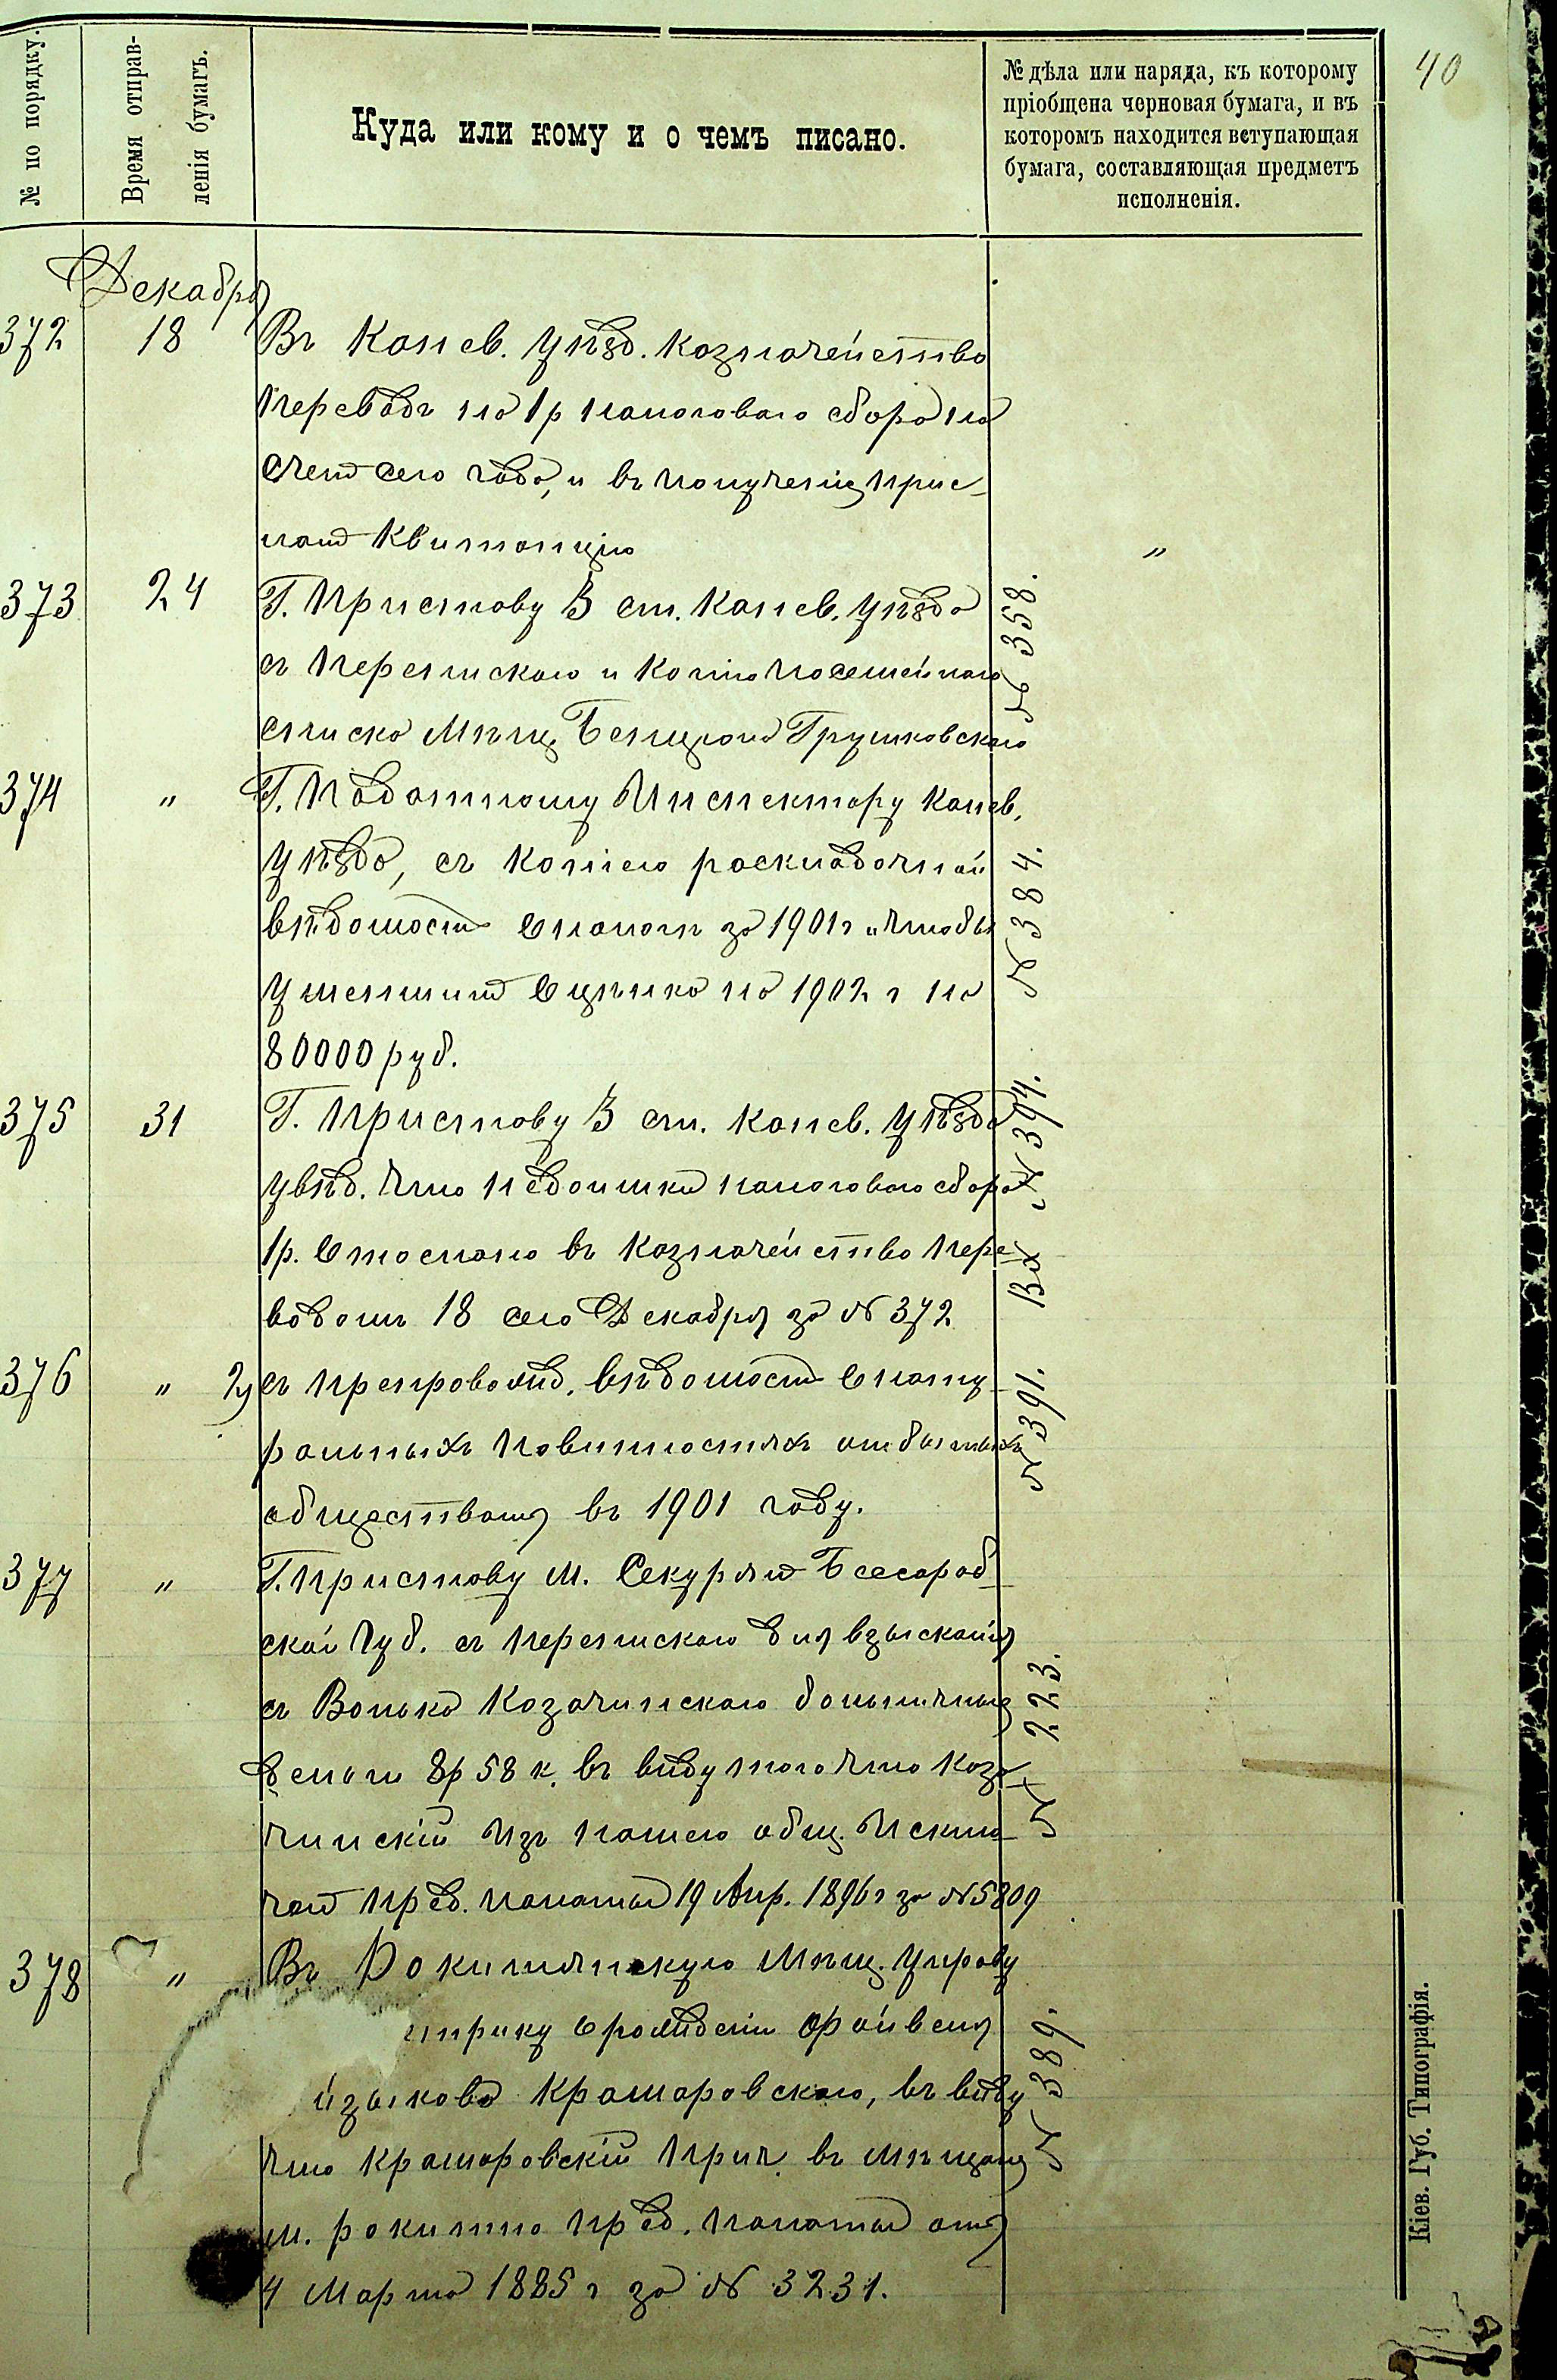 40
№ по порядку.
Время отправ-
ленія бумагъ.
Куда или кому и о чемъ писано.
№ дѣла или наряда, къ которому
пріобщена черновая бумага, и въ
которомъ находится вступающая
бумага, составляющая предметъ
исполненія.
Декабря
372 18 Въ Канев. Уѣзд. Казначейство
переводъ на 1р налоговаго сбора на
счет сего года, и въ полученіи прис-
лат квитанцію "
373 24 Г. Приставу 3 ст. Канев. Уѣзда
съ перепискою и копію посемейнаго
списка Мѣщ. Бенціона Грушковскаго
№ 358.
374 " Г. Податному Инспектору Канев.
Уѣзда, съ копіею раскладочной
вѣдомости о налогѣ за 1901 г чтобы
уменшит оцѣнка на 1902 г на
80000 руб.
№ 384.
375 31 Г. Приставу 3 ст. Канев. Уѣзда
увѣд. что недоимки налоговаго сбора
1р. отослано въ казначейство пере-
водомъ 18 сего Декабря за № 372
Вх № 394.
376 " 2) съ препровожд. вѣдомости о нату-
ральныхъ повинностяхъ отбытыхъ
обществомъ въ 1901 году.
№ 391.
377 " Г. Приставу м. Секурян Бессараб-
ской Губ. съ перепискою для взысканія
съ Волька Казачинскаго больничных
денегъ 8р 58 к. въ виду того что Каза
чинскій изъ нашего общ. исклю-
чен пред. палаты 19 Апр. 1896 г за № 5809
№ 223.
378 " Въ Рокитянскую Мѣщ. Управу
рожденіи Файвеля
Крамаровскаго, въ виду
что Крамаровскій прич. въ мѣщане
м. Рокитно пред. палаты отъ
4 Марта 1885 г за № 3231.
№ 389.
Кіев. Губ. Типографія.